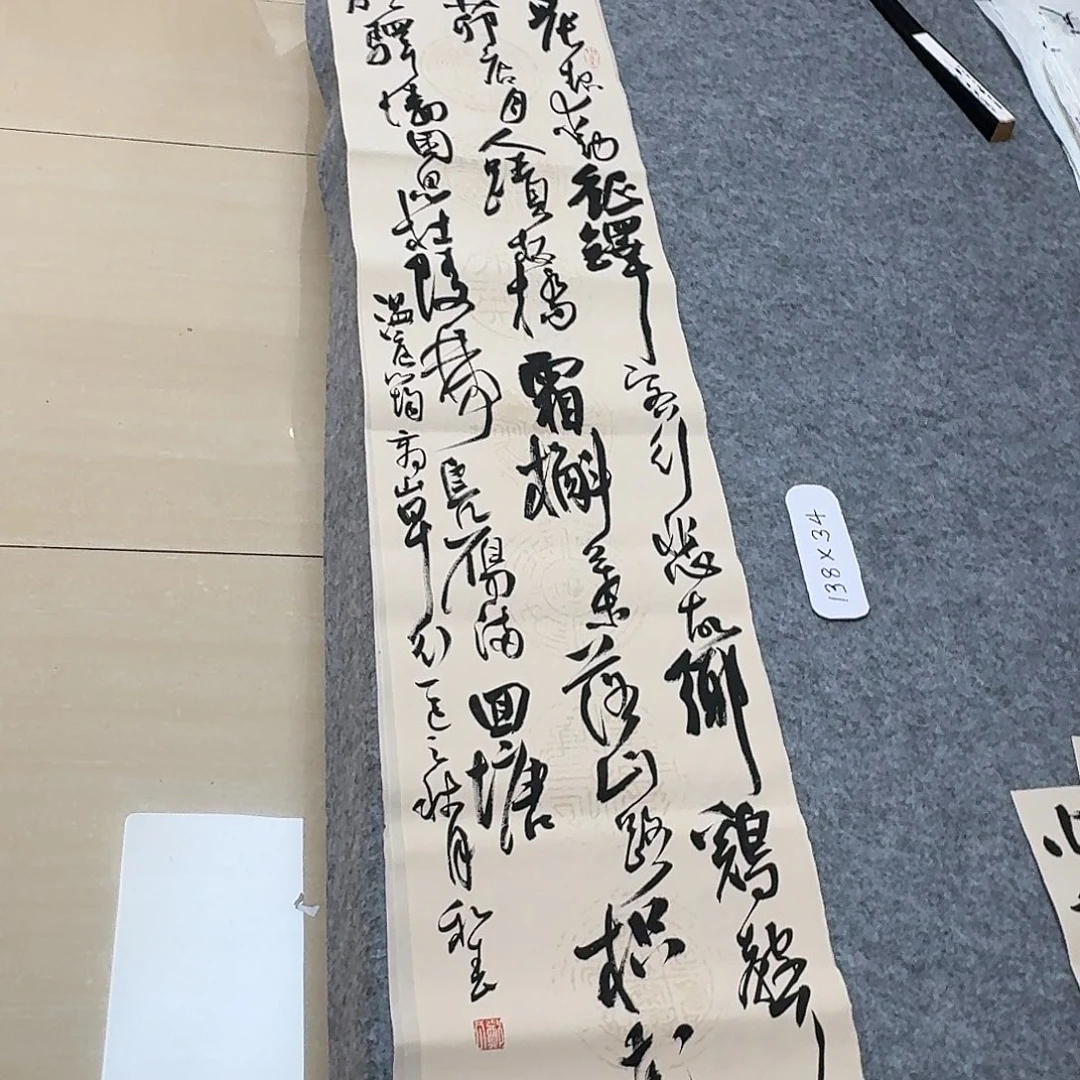 晨起動征鐸客行悲故鄉鷄聲
茆店月人蹟板橋霜槲葉落山路枳花
明驛墻因思杜陵夢鳧鴈滿回塘
温庭筠商山早行
138X34